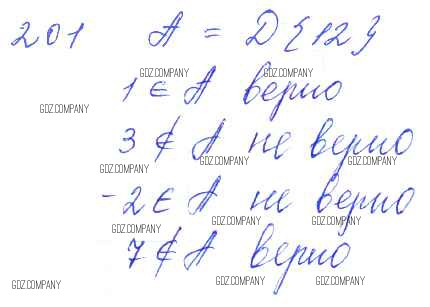 201 A = D{12}
GDZ.COMPANY GDZ.COMPANY
1 ∈ A верно
GDZ.COMPANY
3 ∉ A не верно
GDZ.COMPANY GDZ.COMPANY GDZ.COMPANY
-2 ∈ A не верно
GDZ.COMPANY GDZ.COMPANY
7 ∉ A верно
GDZ.COMPANY GDZ.COMPANY GDZ.COMPANY